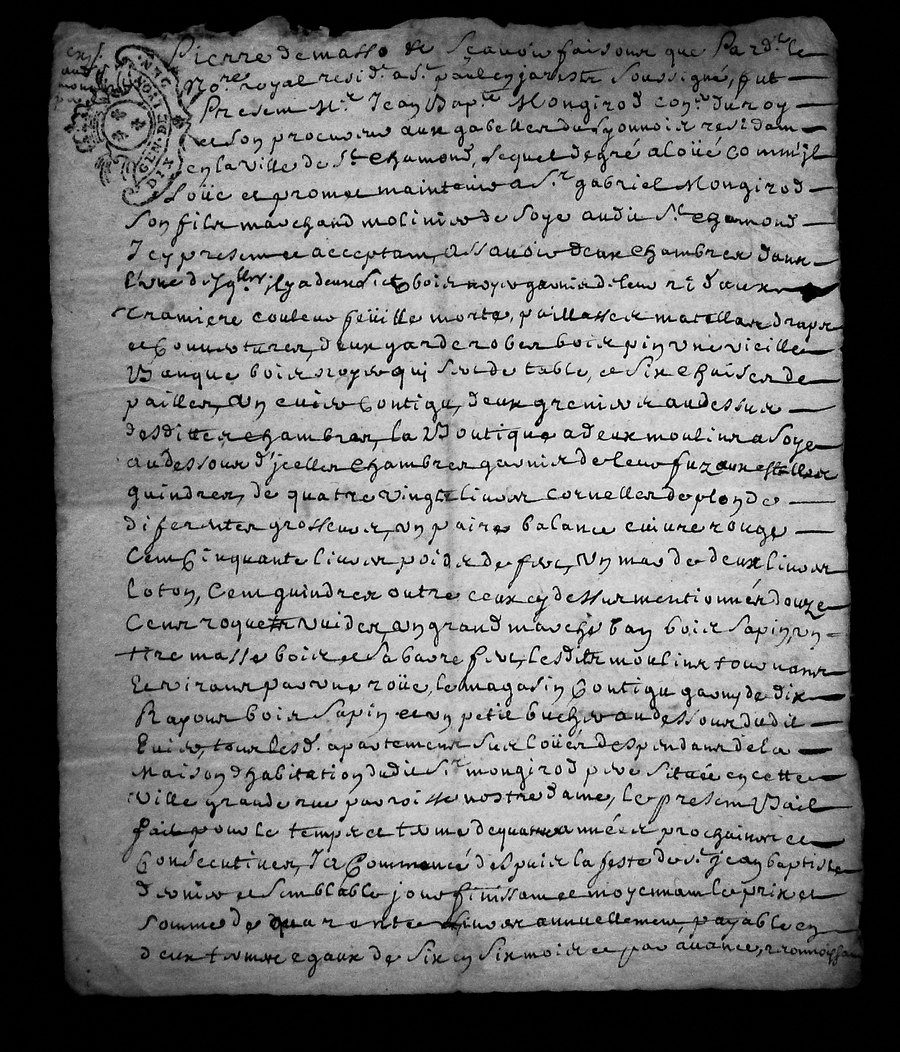 Pierre demasso & Scavoir faisons que Pard.t le
No.re royal resid.t a S.t paul en jarestz soussigné, fut
Presen M.r Jean Bap.te Mongirod con.er du roy
et son procureur aux gabelles du Lyonnois residam
en la ville de S.t Chamond, lequel de gré a loüé Comm'jl
Loüe et promet maintenir a S.r gabriel Mongirod
Son fils marchand molinier de Soye audit S.t Chamond
Jcy presen et acceptam, assavoir deux Chambres dans
L'une desq.lles jl y a deux lict bois noyer garnis de leur ridaux
tramiere couleur feüille morte, paillasses matellas draps
et Couvertures, deux garderobes bois pin, une vieille
Banque bois noyer qui sert de table, et six Chaises de
pailles, un Evier Contigu, deux greniers au dessus
desdittes Chambres, la Boutique a deux moulins a Soye
au dessous d'jcelles Chambres garnis de leur fuzaux estelles
guindres, de quatre vingt livres cornelles de plon de
diferentes grosseurs, un paire balance cuivre rouge
Cent Cinquante livres poids de fer, un marc de deux livres
Loton, Cent guindres outre ceux cy dessus mentionnés douze
Cens roquetz vuides, un grand marche ban bois sapin, un
tire masse bois et sa barre fer, lesdits moulins tournans
Et virans par une roüe, le magasin Contigu garny de dix
Rapous bois sapin et un petit bucher au dessous dudit
Evier, tous lesd. apartemens sus loüés despendans de la
Maison d'habitation dudit S.r mongirod pere située en cette
ville grande rue parroisse nostre dame, le presen Bail
fait pour le temps et terme de quatre années prochaines et
Consecutives, Ja Commencé despuis la feste de S.t jean baptiste
dernier et semblable jour finissam et moyennam le prix et
somme de quarente livres annuellement, payable en
deux termes egaux de six en six mois et par avance, reconnoissam
GEN. DE